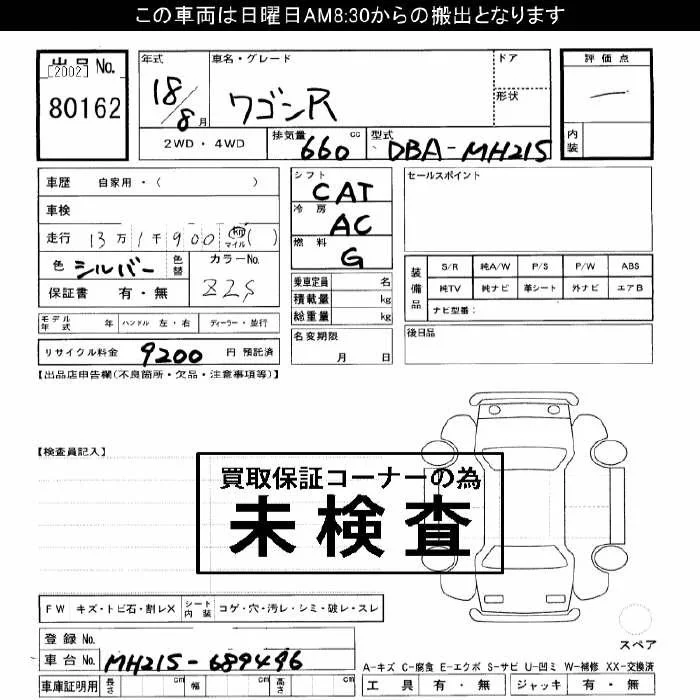 この車両は日曜日AM8:30からの搬出となります
出品No.
[2002]
80162
年式
18/8月
車名・グレード
ワゴンR
ドア
形状
評価点
内装
2WD・4WD
排気量 660 cc
型式 DBA-MH21S
車歴 自家用・( )
車検
走行 13万1千900 km マイル ( )
色 シルバー 色替
カラーNo. Z2S
保証書 有・無
シフト CAT
冷房 AC
燃料 G
乗車定員 名
積載量 kg
総重量 kg
名変期限
月 日
セールスポイント
装備品
S/R 純A/W P/S P/W ABS
純TV 純ナビ 革シート 外ナビ エアB
ナビ型番:
後日品
モデル年式 年 ハンドル 左・右 ディーラー・並行
リサイクル料金 9200 円 預託済
【出品店申告欄(不良箇所・欠品・注意事項等)】
【検査員記入】
買取保証コーナーの為
未検査
FW キズ・トビ石・割レX シート内装 コゲ・穴・汚レ・シミ・破レ・スレ
登録No.
車台No. MH21S-689496
車庫証明用 長さ cm 幅 cm 高さ cm
スペア
A-キズ C-腐食 E-エクボ S-サビ U-凹ミ W-補修 XX-交換済
工具 有・無 ジャッキ 有・無